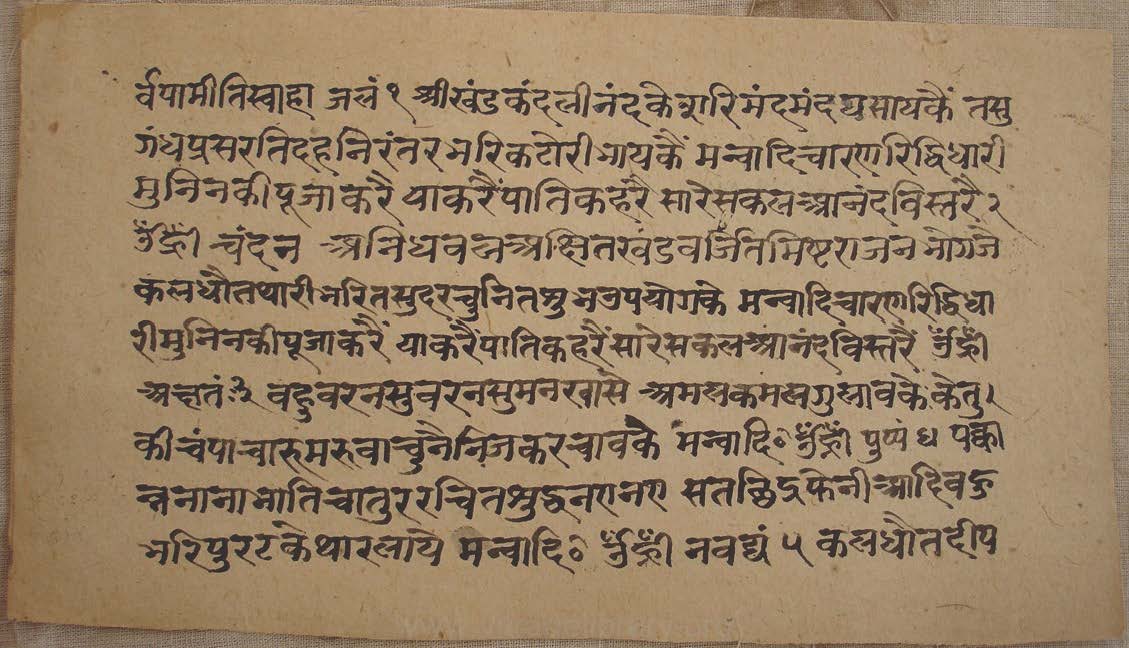 र्वपामीतिस्वाहा जलं १ श्रीखंडकंदलीनंदकेशरिमंदमंदघसायकैं तसु
गंधप्रसरतिदहनिरंतरभरिकटोरीभायकैं मन्वादिचारणरिद्धिधारी
मुनिनकीपूजाकरै याकरैंपातिकहरै सारेसकलआनंदविस्तरै २
ॐह्रीं चंदन अनिधवलअक्षितखंडवर्जितमिष्टराजनभोगजै
कलधौतथारीभरितसुंदरचुनितशुभउपयोगकै मन्वादिचारणरिद्धिधा
रीमुनिनकीपूजाकरैं याकरैंपातिकहरैंसारेसकलआनंदविस्तरैं ॐह्रीं
अक्षतं ३ वहुवरनसुवरनसुमनखासै अमलकमलगुलावकै केतु।
कीचंपाचारुमरुवाचुनैनिजकरचावकै मन्वादि॰ ॐह्रीं पुष्पं ४ पक्वा
न्ननानाभांतिचातुररचितशुद्धनएनए सतछिद्रफेनीआदिवहु
भरिपुरटकैथारलायै मन्वादि॰ ॐह्रीं नवद्यं ५ कलधौतदीप